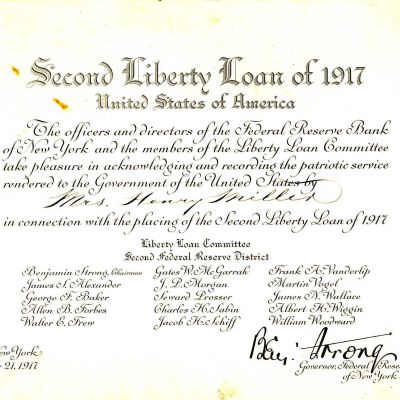 Second Liberty Loan of 1917
United States of America
The officers and directors of the Federal Reserve Bank
of New York and the members of the Liberty Loan Committee
take pleasure in acknowledging and recording the patriotic service
rendered to the Government of the United States by
Mrs. Henry Miller
in connection with the placing of the Second Liberty Loan of 1917
Liberty Loan Committee
Second Federal Reserve District
Benjamin Strong, Chairman Gates W. McGarrah Frank A. Vanderlip
James S. Alexander J. P. Morgan Martin Vogel
George F. Baker Seward Prosser James N. Wallace
Allen B. Forbes Charles H. Sabin Albert H. Wiggin
Walter E. Frew Jacob H. Schiff William Woodward
Benj. Strong
New York
21, 1917
Governor, Federal Reserve
of New York